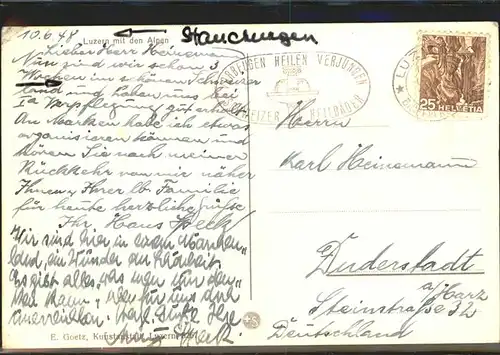 10.6.48
Luzern mit den Alpen
Stauchungen
Lieber Herr Heinemann
Nun sind wir schon 3
Wochen im schönen Schweizer
Land und haben uns bei
Ia Verpflegung gut erholt.
An Marken habe ich etwas
organisieren können und
hören Sie nach meiner
Rückkehr von mir näher
Ihnen u. Ihrer lb. Familie
für heute herzliche Grüße
Ihr. Hans Speck
Wir sind hier in einem Märchen„
land, ein Wunder an Klarheit.
Es gibt alles, was man
kann, aber für uns doch
unerreichbar.
E. Goetz, Kunstanstalt, Luzern
HEILEN VERJÜNGEN
SCHWEIZER HEILBÄDER
LUZERN
25 HELVETIA
Herrn
Karl Heinemann
Duderstadt
a/Harz
Steinstraße 32
Deutschland